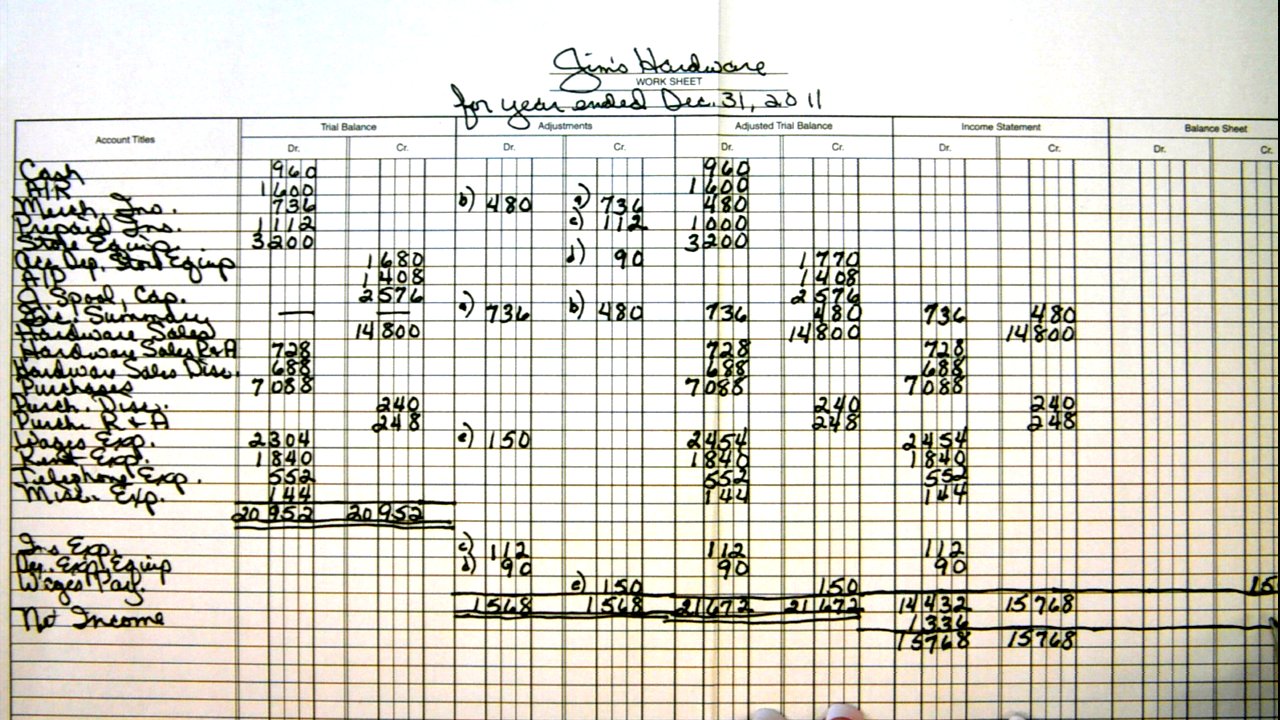 Jim's Hardware
WORK SHEET
for year ended Dec. 31, 2011
Account Titles Trial Balance Adjustments Adjusted Trial Balance Income Statement Balance Sheet
Dr. Cr. Dr. Cr. Dr. Cr. Dr. Cr. Dr. Cr.
Cash 960 960
A/R 1600 1600
Merch. Ins. 736 b) 480 a) 736 480
Prepaid Ins. 1112 c) 112 1000
Store Equip. 3200 3200
Acc. Dep. Store Equip 1680 d) 90 1770
A/P 1408 1408
J. Spool, Cap. 2576 2576
Inc. Summary — — a) 736 b) 480 736 480 736 480
Hardware Sales 14800 14800 14800
Hardware Sales R+A 728 728 728
Hardware Sales Disc. 688 688 688
Purchases 7088 7088 7088
Purch. Disc. 240 240 240
Purch. R + A 248 248 248
Wages Exp. 2304 e) 150 2454 2454
Rent Exp. 1840 1840 1840
Telephone Exp. 552 552 552
Misc. Exp. 144 144 144
20952 20952
Ins Exp. c) 112 112 112
Dep. Exp. Equip d) 90 90 90
Wages Pay. e) 150 150 15
1568 1568 21672 21672 14432 15768
Net Income 1336
15768 15768